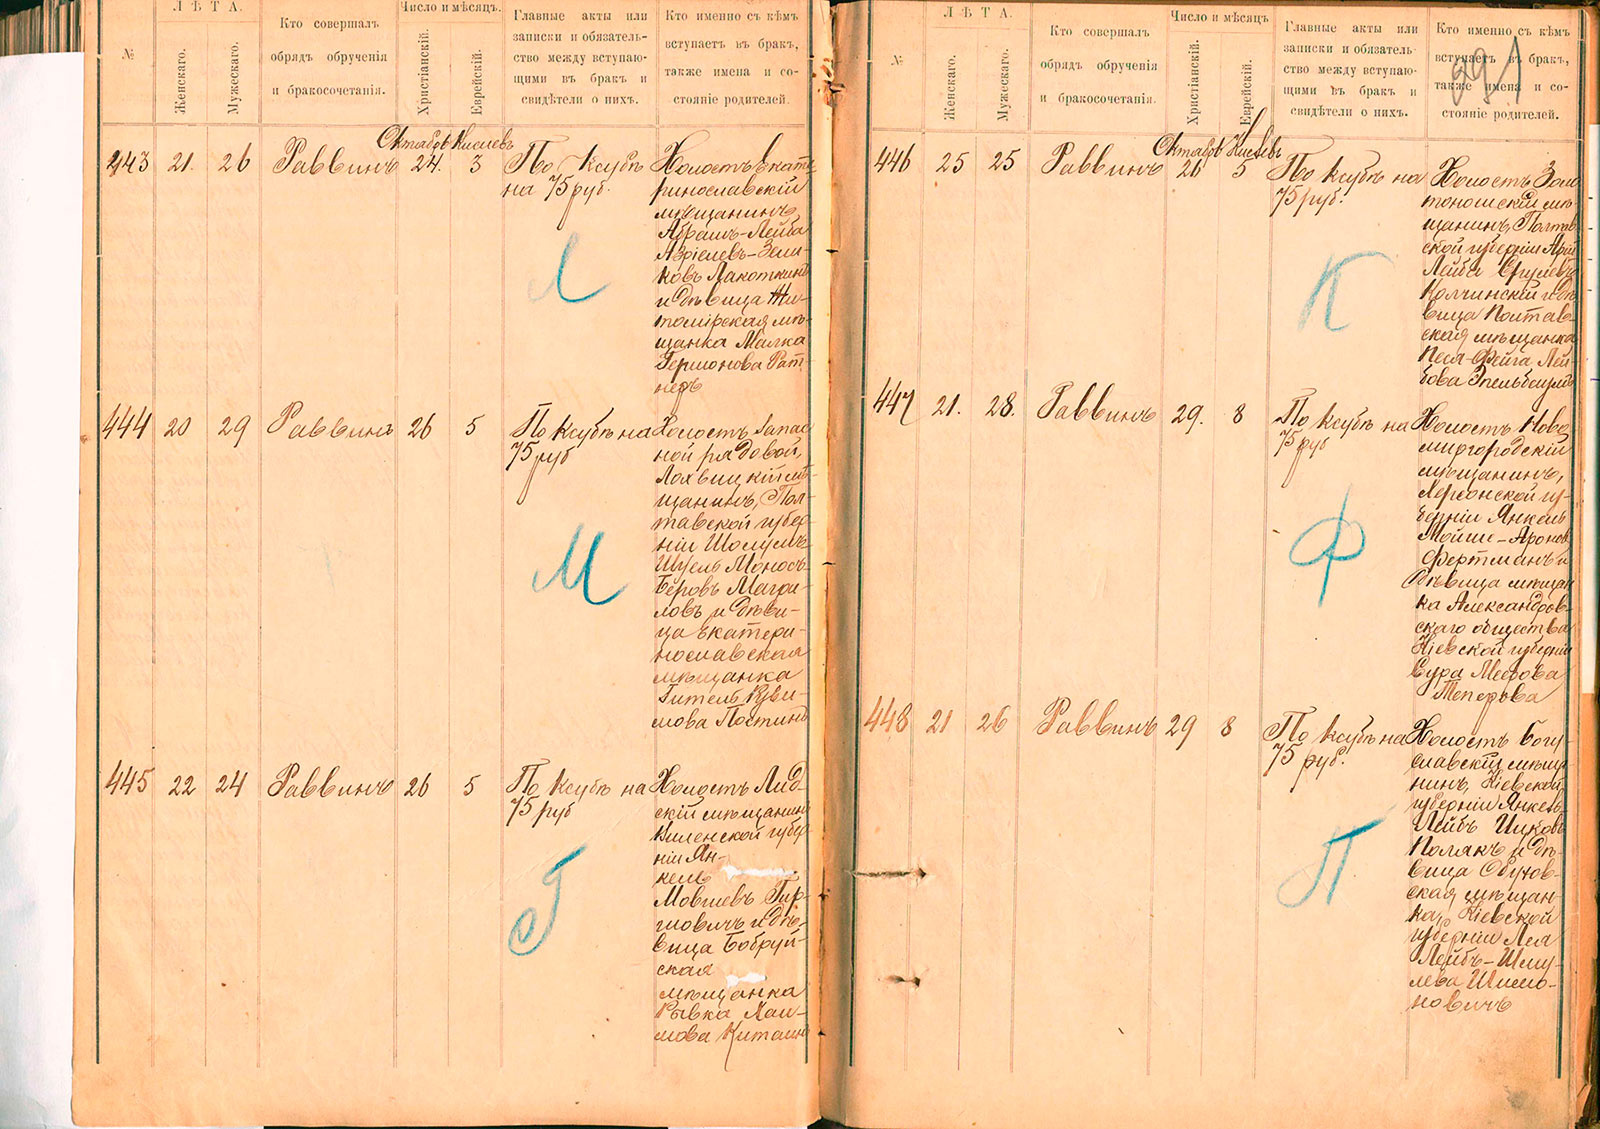 №
ЛѢТА.
Женскаго.
Мужескаго.
Кто совершалъ
обрядъ обрученія
и бракосочетанія.
Число и мѣсяцъ.
Христіанскій.
Еврейскій.
Главные акты или
записки и обязатель-
ство между вступаю-
щими въ бракъ и
свидѣтели о нихъ.
Кто именно съ кѣмъ
вступаетъ въ бракъ,
также имена и со-
стояніе родителей.
Октябрь Кислевъ
443 21. 26 Раввинъ 24. 3
По Ксубѣ
на 75 руб.
Л
Холостъ Екате
ринославскій
мѣщанинъ
Абрамъ-Лейба
Азріелевъ-Зели-
ковъ Лакоткинъ
и дѣвица Жи-
томірская мѣ-
щанка Малка
Гершонова Рат-
неръ
444 20 29 Раввинъ 26 5
По Ксубѣ на
75 руб
М
Холостъ запас
ной рядовой,
Лохвицкій мѣ-
щанинъ, Пол-
тавской губер-
ніи Шолумъ
Шусль Монось-
Беровъ Магри-
ловъ и дѣви-
ца Екатери-
нославская
мѣщанка
Гитель Куви-
мова Постинъ
445 22 24 Раввинъ 26 5
По Ксубѣ на
75 руб
Г
Холостъ Лид-
скій мѣщанинъ
Виленской губер
ніи Ян-
кель
Мовшевъ Гир-
шовичъ и дѣ-
вица Бобруй-
ская
мѣщанка
Рывка Хаи-
мова Китаинъ
391
№
ЛѢТА.
Женскаго.
Мужескаго.
Кто совершалъ
обрядъ обрученія
и бракосочетанія.
Число и мѣсяцъ
Христіанскій.
Еврейскій.
Главные акты или
записки и обязатель-
ство между вступаю-
щими въ бракъ и
свидѣтели о нихъ.
Кто именно съ кѣмъ
вступаетъ въ бракъ,
также имена и со-
стояніе родителей.
Октябрь Кислевъ
446 25 25 Раввинъ 26 5
По Ксубѣ на
75 руб.
К
Холостъ Золо
тоношскій мѣ-
щанинъ, Полтав
ской губерніи Арій
Лейба Срулевъ
Колчинскій и дѣ
вица Полтав-
ская мѣщанка
Песя-Фейга Лей-
бова Эпельбаумъ
447 21. 28. Раввинъ 29. 8
По Ксубѣ на
75 руб
Ф
Холостъ Ново
миргородскій
мѣщанинъ,
Херсонской гу-
берніи Янкель
Мойше-Ароновъ
Фертманъ и
дѣвица мѣщан
ка Александров-
скаго общества
Кіевской губерніи
Сура Меерова
Теперова
448 21 26 Раввинъ 29 8
По Ксубѣ на
75 руб.
П
Холостъ Богу-
славскій мѣща-
нинъ, Кіевской
губерніи Янкель-
Лейбъ Ицковъ
Полякъ и дѣ-
вица Обухов-
ская мѣщан-
ка, Кіевской
губерніи Лея
Лейбъ-Шму-
лева Шимо-
новичъ